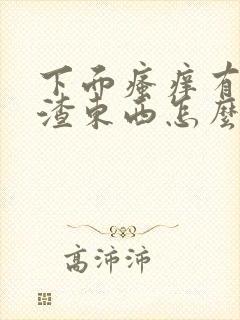 下而瘙痒有
渣东西怎麽
高沛沛